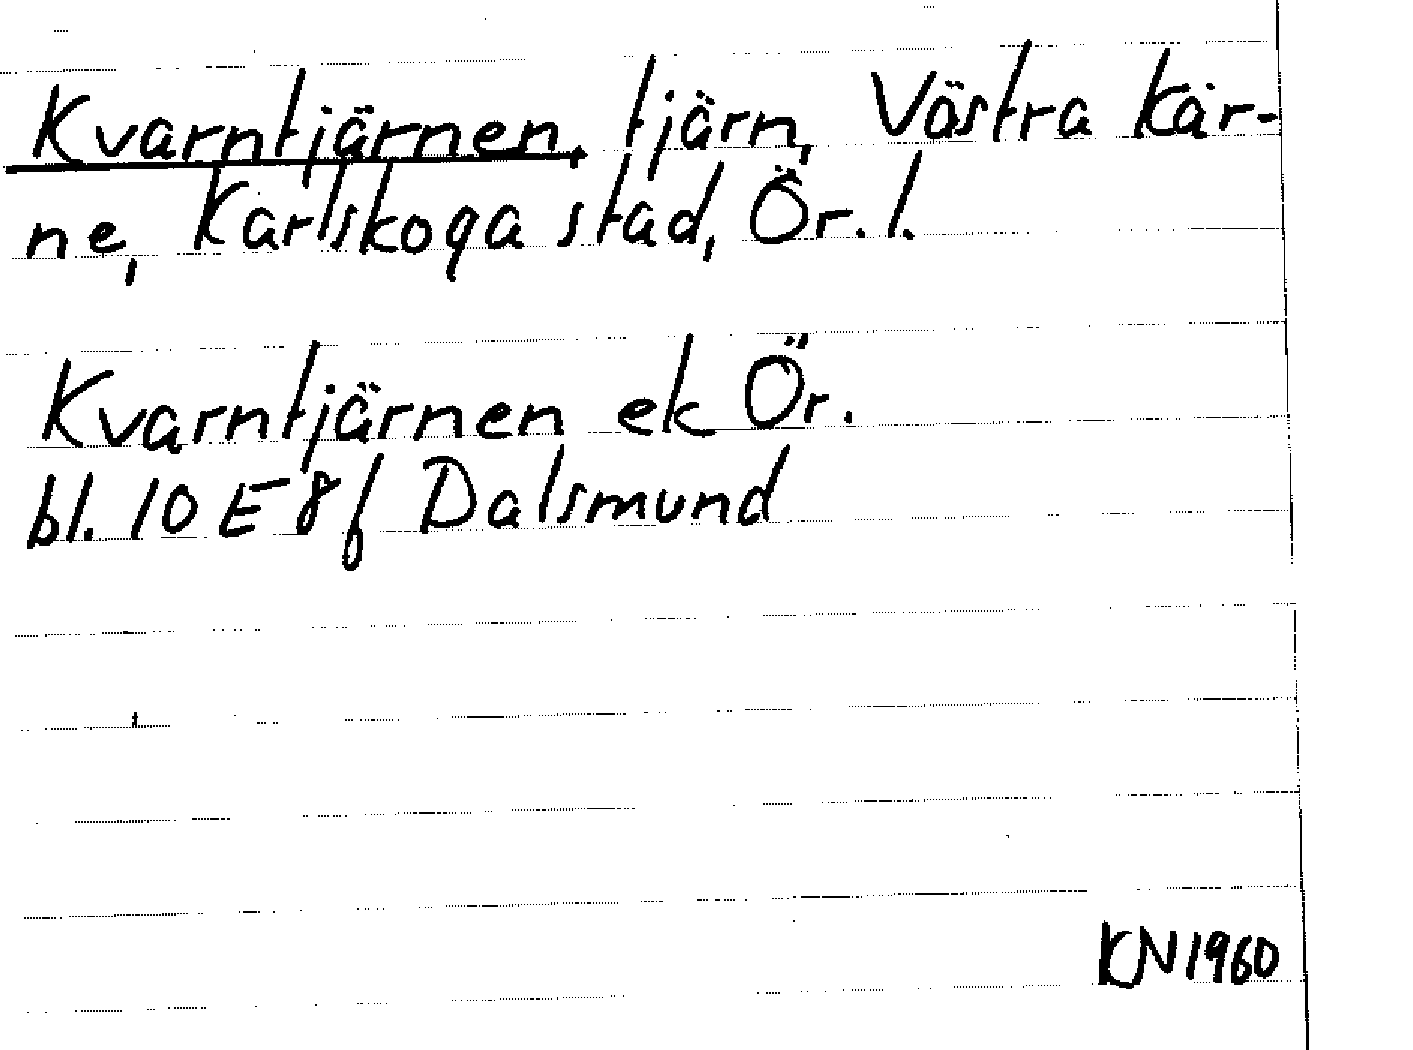 Kvarntjärnen, tjärn, Västra Kär-
ne, Karlskoga stad, Ör. l.
Kvarntjärnen ek Ör.
bl. 10 E 8 f Dalsmund
KN 1960